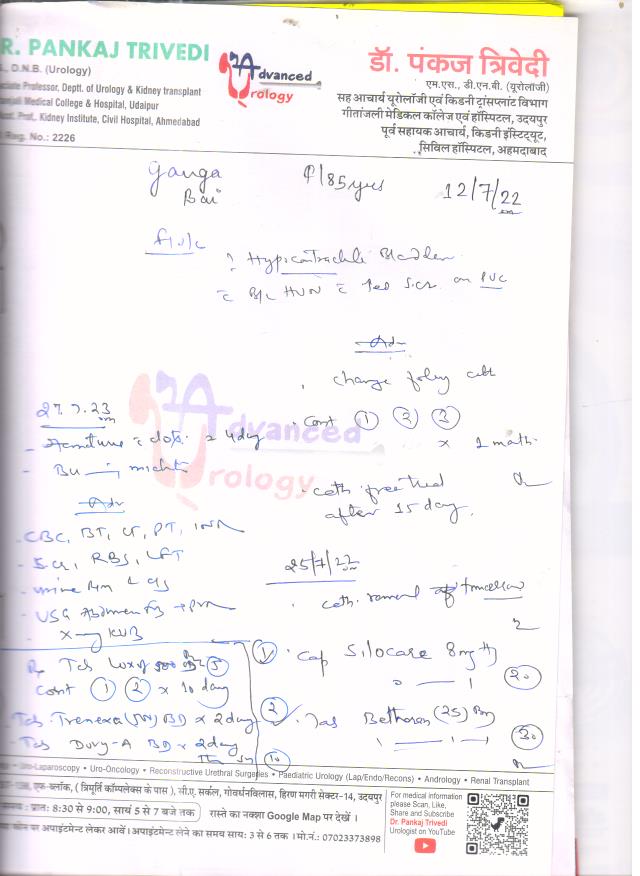 R. PANKAJ TRIVEDI
., D.N.B. (Urology)
ociate Professor, Deptt. of Urology & Kidney transplant
anjali Medical College & Hospital, Udaipur
sst. Prof., Kidney Institute, Civil Hospital, Ahmedabad
Reg. No.: 2226
Advanced
Urology
डॉ. पंकज त्रिवेदी
एम.एस., डी.एन.बी. (यूरोलॉजी)
सह आचार्य यूरोलॉजी एवं किडनी ट्रांसप्लांट विभाग
गीतांजली मेडिकल कॉलेज एवं हॉस्पिटल, उदयपुर
पूर्व सहायक आचार्य, किडनी इंस्टिट्यूट,
सिविल हॉस्पिटल, अहमदाबाद
Ganga
Bai
F/85yrs
12/7/22
f/u/c
? Hypocontractile Bladder
B/L HUN on PUC
Adv
change foley
Cont 1 2 3
x 1 month
cath free trial
after 15 day
25/7/22
cath. removal tomorrow
1 Cap Silocare 8mg
0 — 1
20
2 Tab (25)
1 — 1
30
27.7.23
- Hematuria clots 4day
-
Adv
- CBC, BT, CT, PT, INR
- S.Cr, RBS, LFT
- urine R/M & C/S
- USG Abdomen
- X-ray KUB
Rx Tab 500 5
Cont 1 2 x 10 day
- Tab. Trenexa (500) BD x 2day
- Tab BD x 2day
10
Advanced
Urology
Uro-Laparoscopy • Uro-Oncology • Reconstructive Urethral Surgeries • Paediatric Urology (Lap/Endo/Recons) • Andrology • Renal Transplant
एफ-ब्लॉक, ( त्रिमूर्ति कॉम्पलेक्स के पास ), सी.ए. सर्कल, गोवर्धनविलास, हिरण मगरी सेक्टर-14, उदयपुर
समय : प्रातः 8:30 से 9:00, सायं 5 से 7 बजे तक रास्ते का नक्शा Google Map पर देखें ।
फोन पर अपाइंटमेन्ट लेकर आवें । अपाइंटमेन्ट लेने का समय सायः 3 से 6 तक । मो.नं.: 07023373898
For medical information
please Scan, Like,
Share and Subscribe
Dr. Pankaj Trivedi
Urologist on YouTube